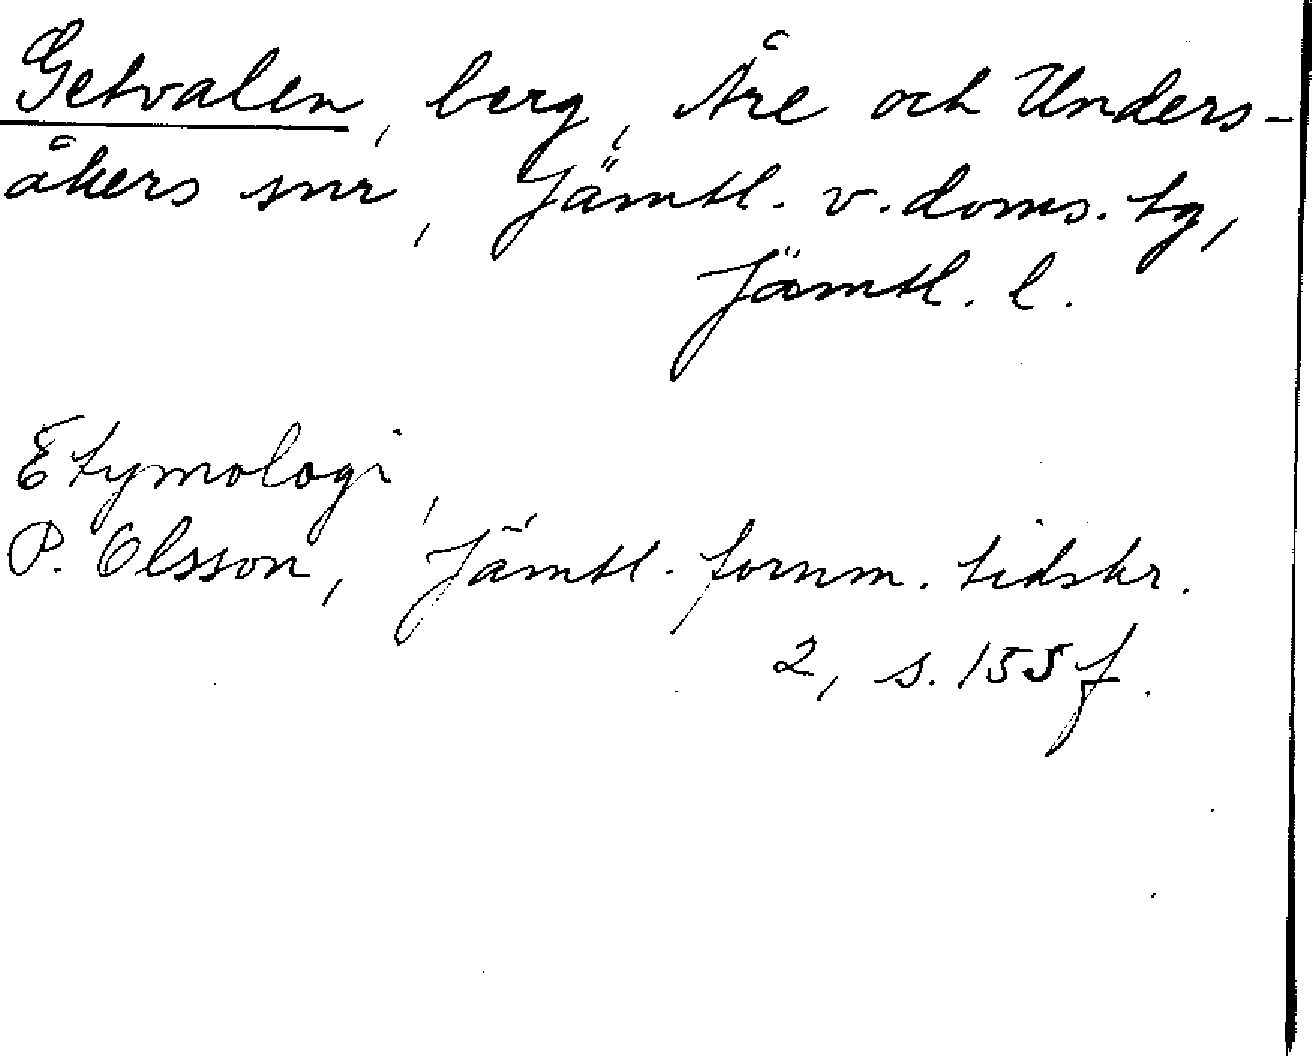 Getvalen, berg, Åre och Unders-
åkers snr, Jämtl. v. doms. tg,
Jämtl. l.
Etymologi,
P. Olsson, Jämtl. fornm. tidskr.
2, s. 155 f.